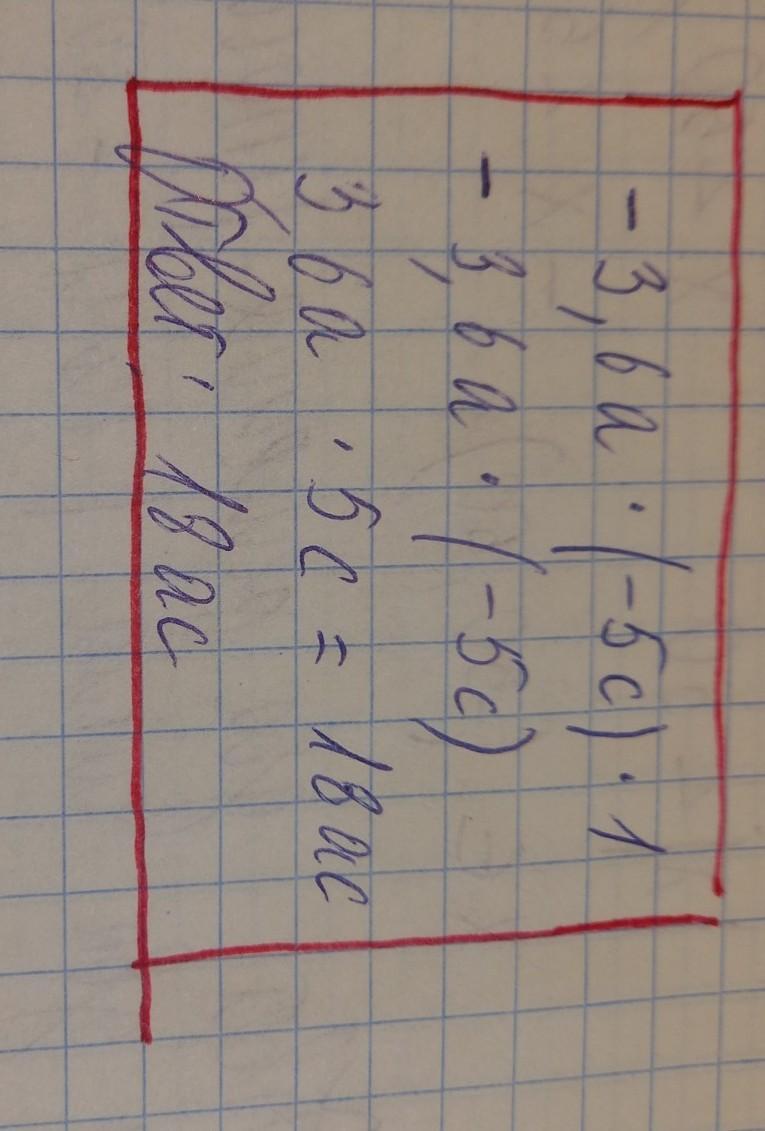 - 3,6a · (-5c) · 1
- 3,6a · (-5c)
3 6a · 5c = 18ac
Ответ: 18ac